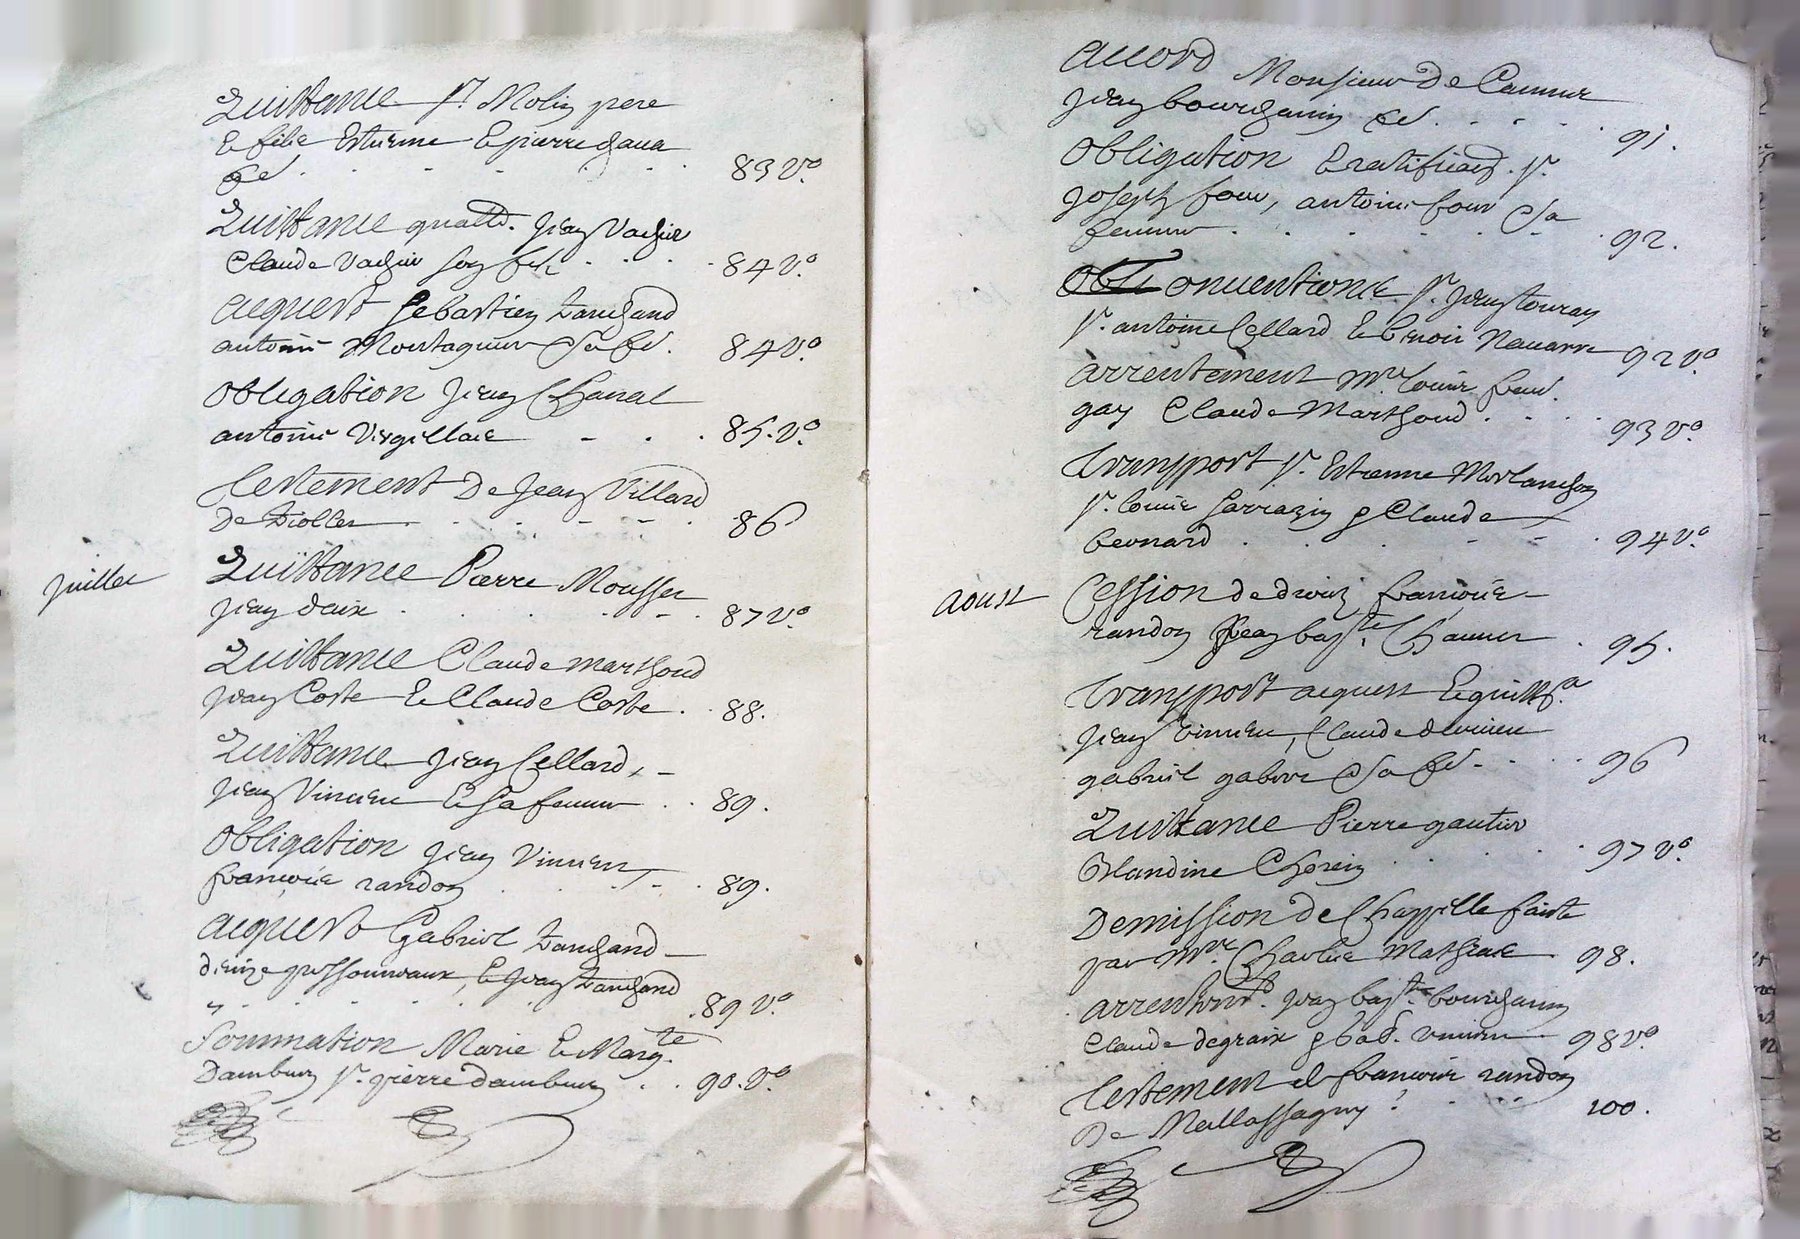 Quittance sr. Molin pere
& filz Estienne & pierre
&c. 83 vo.
Quittance quallt. Jean Vachier
Claude Vachier son filz 84 vo.
acquest Sebastien tauchand
antoine Montagnier & sa fe. 84 vo.
obligation Jean Chanal
antoine Virgillae 85. vo.
testement De Jean Villard
De 86
Juillet
Quittance Pierre Mousset
Jean daix 87 vo.
Quittance Claude marthoud
Jean Coste & Claude Coste. 88.
Quittance Jean Cellard,
Jean Vincien & sa femme 89.
obligation Jean Vincien
francoise randon 89.
acquest Gabriel tauchand
& Jean tauchand
89 vo.
Sommation Marie & Margte.
Dambuen sr. pierre dambuen 90. vo.
accord Monsieur De
Jean bourchanin &c. 91.
obligation & ratifficaon. sr.
Joseph four, antoine four & sa
femme 92.
Obli onuentions sr. Jean
sr. antoine Cellard & benoit Nauarre 92 vo.
arrentement Mre. louis
gay Claude Marthoud 93 vo.
Transport sr. Estienne Merlanchon
sr. louis Sarrazin & Claude
bernard 94 vo.
aoust
Cession de droitz francoise
randon Jean bapte. Chanier 95.
Transport acquest & quitta.
Jean vincien, Claude
gabriel gabore & sa fe. 96
Quittance Pierre gautier
Blandine Chorein 97 vo.
Demission de Chappelle faite
par Mre. Charles Mathiae 98.
arrentemt. Jean bapte. bourchanin
Claude degraix & vincien 98 vo.
testement de francoise randon
De Mallassagny 100.